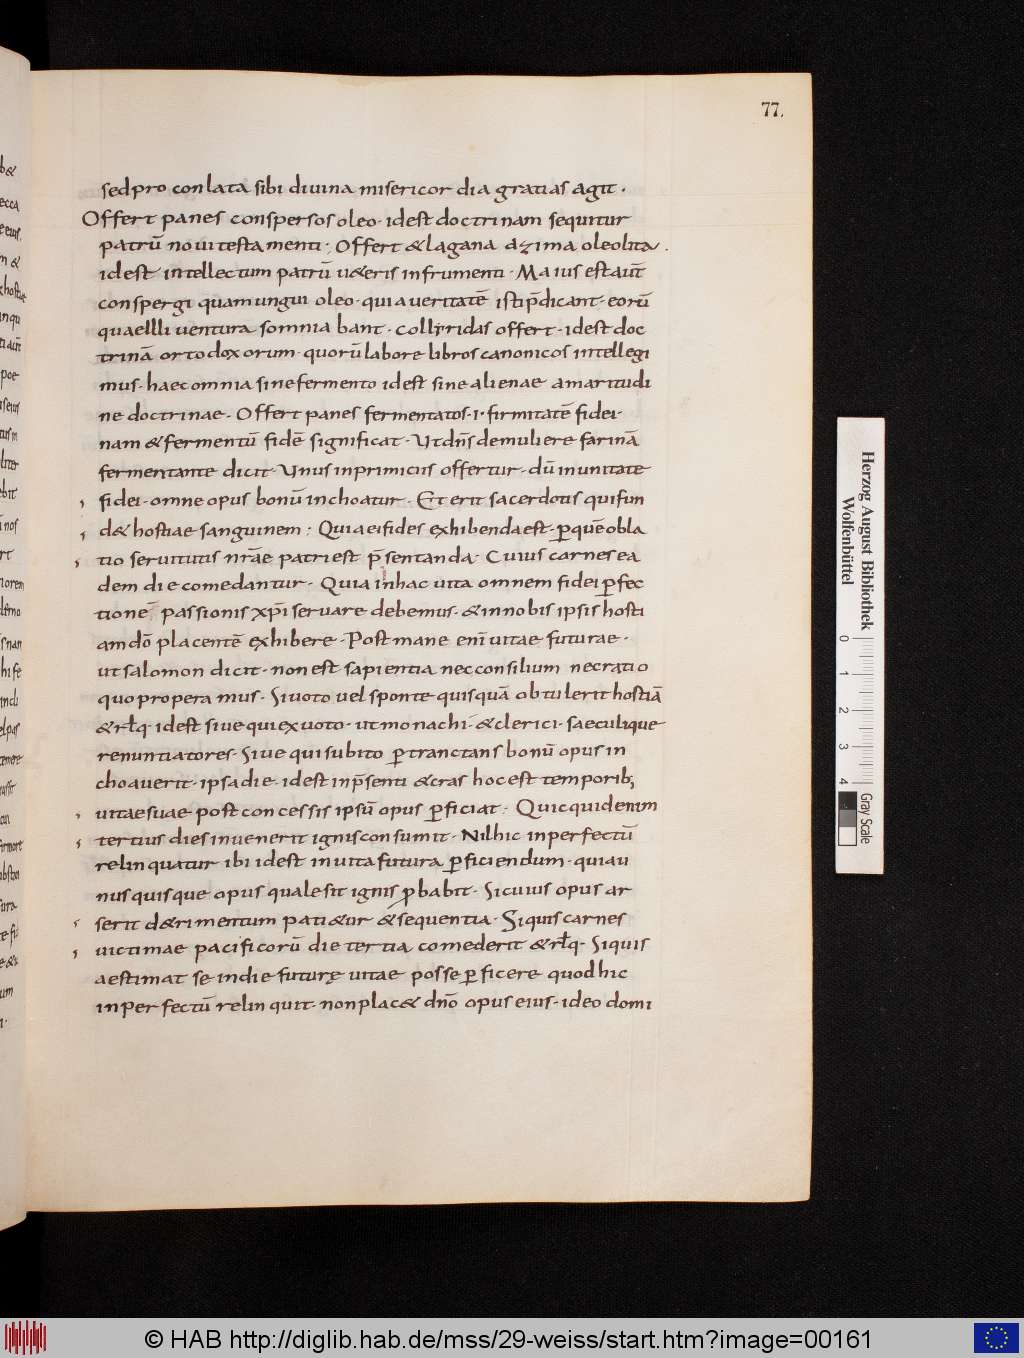 77.
sed pro conlata sibi diuina misericordia gratias agit·
Offert panes conspersos oleo· idest doctrinam sequitur
patrū noui testamenti· Offert & lagana azima oleo lita·
idest intellectum patrū u&eris infrumenti· Maius est aūt
conspergi quam ungui oleo· quia ueritatē isti p̄dicant· eorū
quae illi uentura somniabant· collyridas offert· idest doc
trinā ortodoxorum· quorū labore libros canonicos intellegi
mus· haec omnia sine fermento idest sine alienae amaritudi
ne doctrinae· Offert panes fermentatos· i· firmitatē fidei·
nam & fermentū fidē significat· Ut dn̄s de muliere farinā
fermentante dicit· Unus in primiciis offertur· dū in unitate
fidei· omne opus bonū inchoatur· Et erit sacerdotis qui fun
d& hostiae sanguinem: Quia ei fides exhibenda est· ꝑ quē obla
tio seruitutis nr̄ae patri est p̄sentanda· Cuius carnes ea
dem die comedantur· Quia in hac uita omnem fidei ꝑfec
tionē passionis xp̄i seruare debemus· & in nobis ipsis hosti
am dō placentē exhibere· Post mane eni̅ uitae futurae·
ut salomon dicit· non est sapientia nec consilium nec ratio
quo properamus· Si uoto uel sponte quisquā obtulerit hostiā
& rł q· idest siue qui ex uoto· ut monachi· & clerici· saeculique
renuntiatores· Siue qui subito ꝑtranctans bonū opus in
choauerit· ipsa die· idest in p̄senti & cras hoc est temporib;
uitae suae post concessis ipsū opus ꝑficiat: Quicquid enim
tertius dies inuenerit ignis consumit· Nil hic inperfectū
relinquatur ibi idest in uita futura ꝑficiendum· quia u
nus quisque opus quale sit ignis ꝓbabit· Si cuius opus ar
serit d&rimentum pati&ur & sequentia· Siquis carnes
uictimae pacificorū die tertia comederit & rł q· Siquis
aestimat se in die futurę uitae posse ꝑficere quod hic
inperfectū relinquit· non plac& dn̄o opus eius· ideo domi
Herzog August Bibliothek
Wolfenbüttel
0 1 2 3 4
Gray Scale
© HAB http://diglib.hab.de/mss/29-weiss/start.htm?image=00161